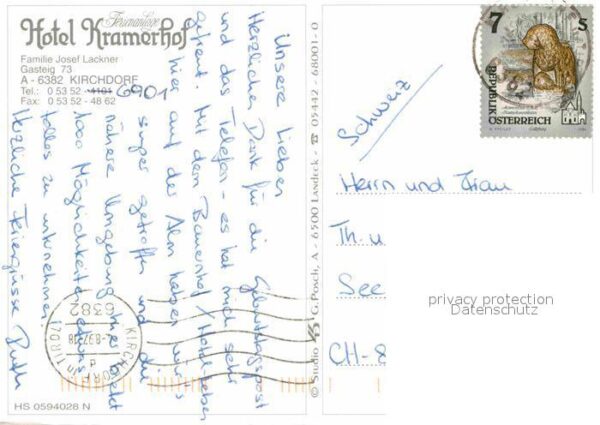 Ferienanlage
Hotel Kramerhof
Familie Josef Lackner
Gasteig 73
A - 6382 KIRCHDORF
Tel.: 0 53 52 - 4101 6901
Fax: 0 53 52 - 48 62
Unsere Lieben
Herzlichen Dank für die Geburtstagspost
und das Telefon - es hat mich sehr
gefreut. Mit dem Bauernhof / Hotel-Leben
hier auf der Alm haben wir's
super getroffen und die
nähere Umgebung hier
1000 Möglichkeiten etwas
tolles zu unternehmen.
Herzliche Feriengrüsse Ruth
6382
KIRCHDORF IN TIROL
HS 0594028 N
© Studio G. Posch, A - 6500 Landeck - ☎ 05442 - 68001-0
7 S
REPUBLIK
ÖSTERREICH
Schweiz
Herrn und Frau
Th. u
See
CH-8
privacy protection
Datenschutz